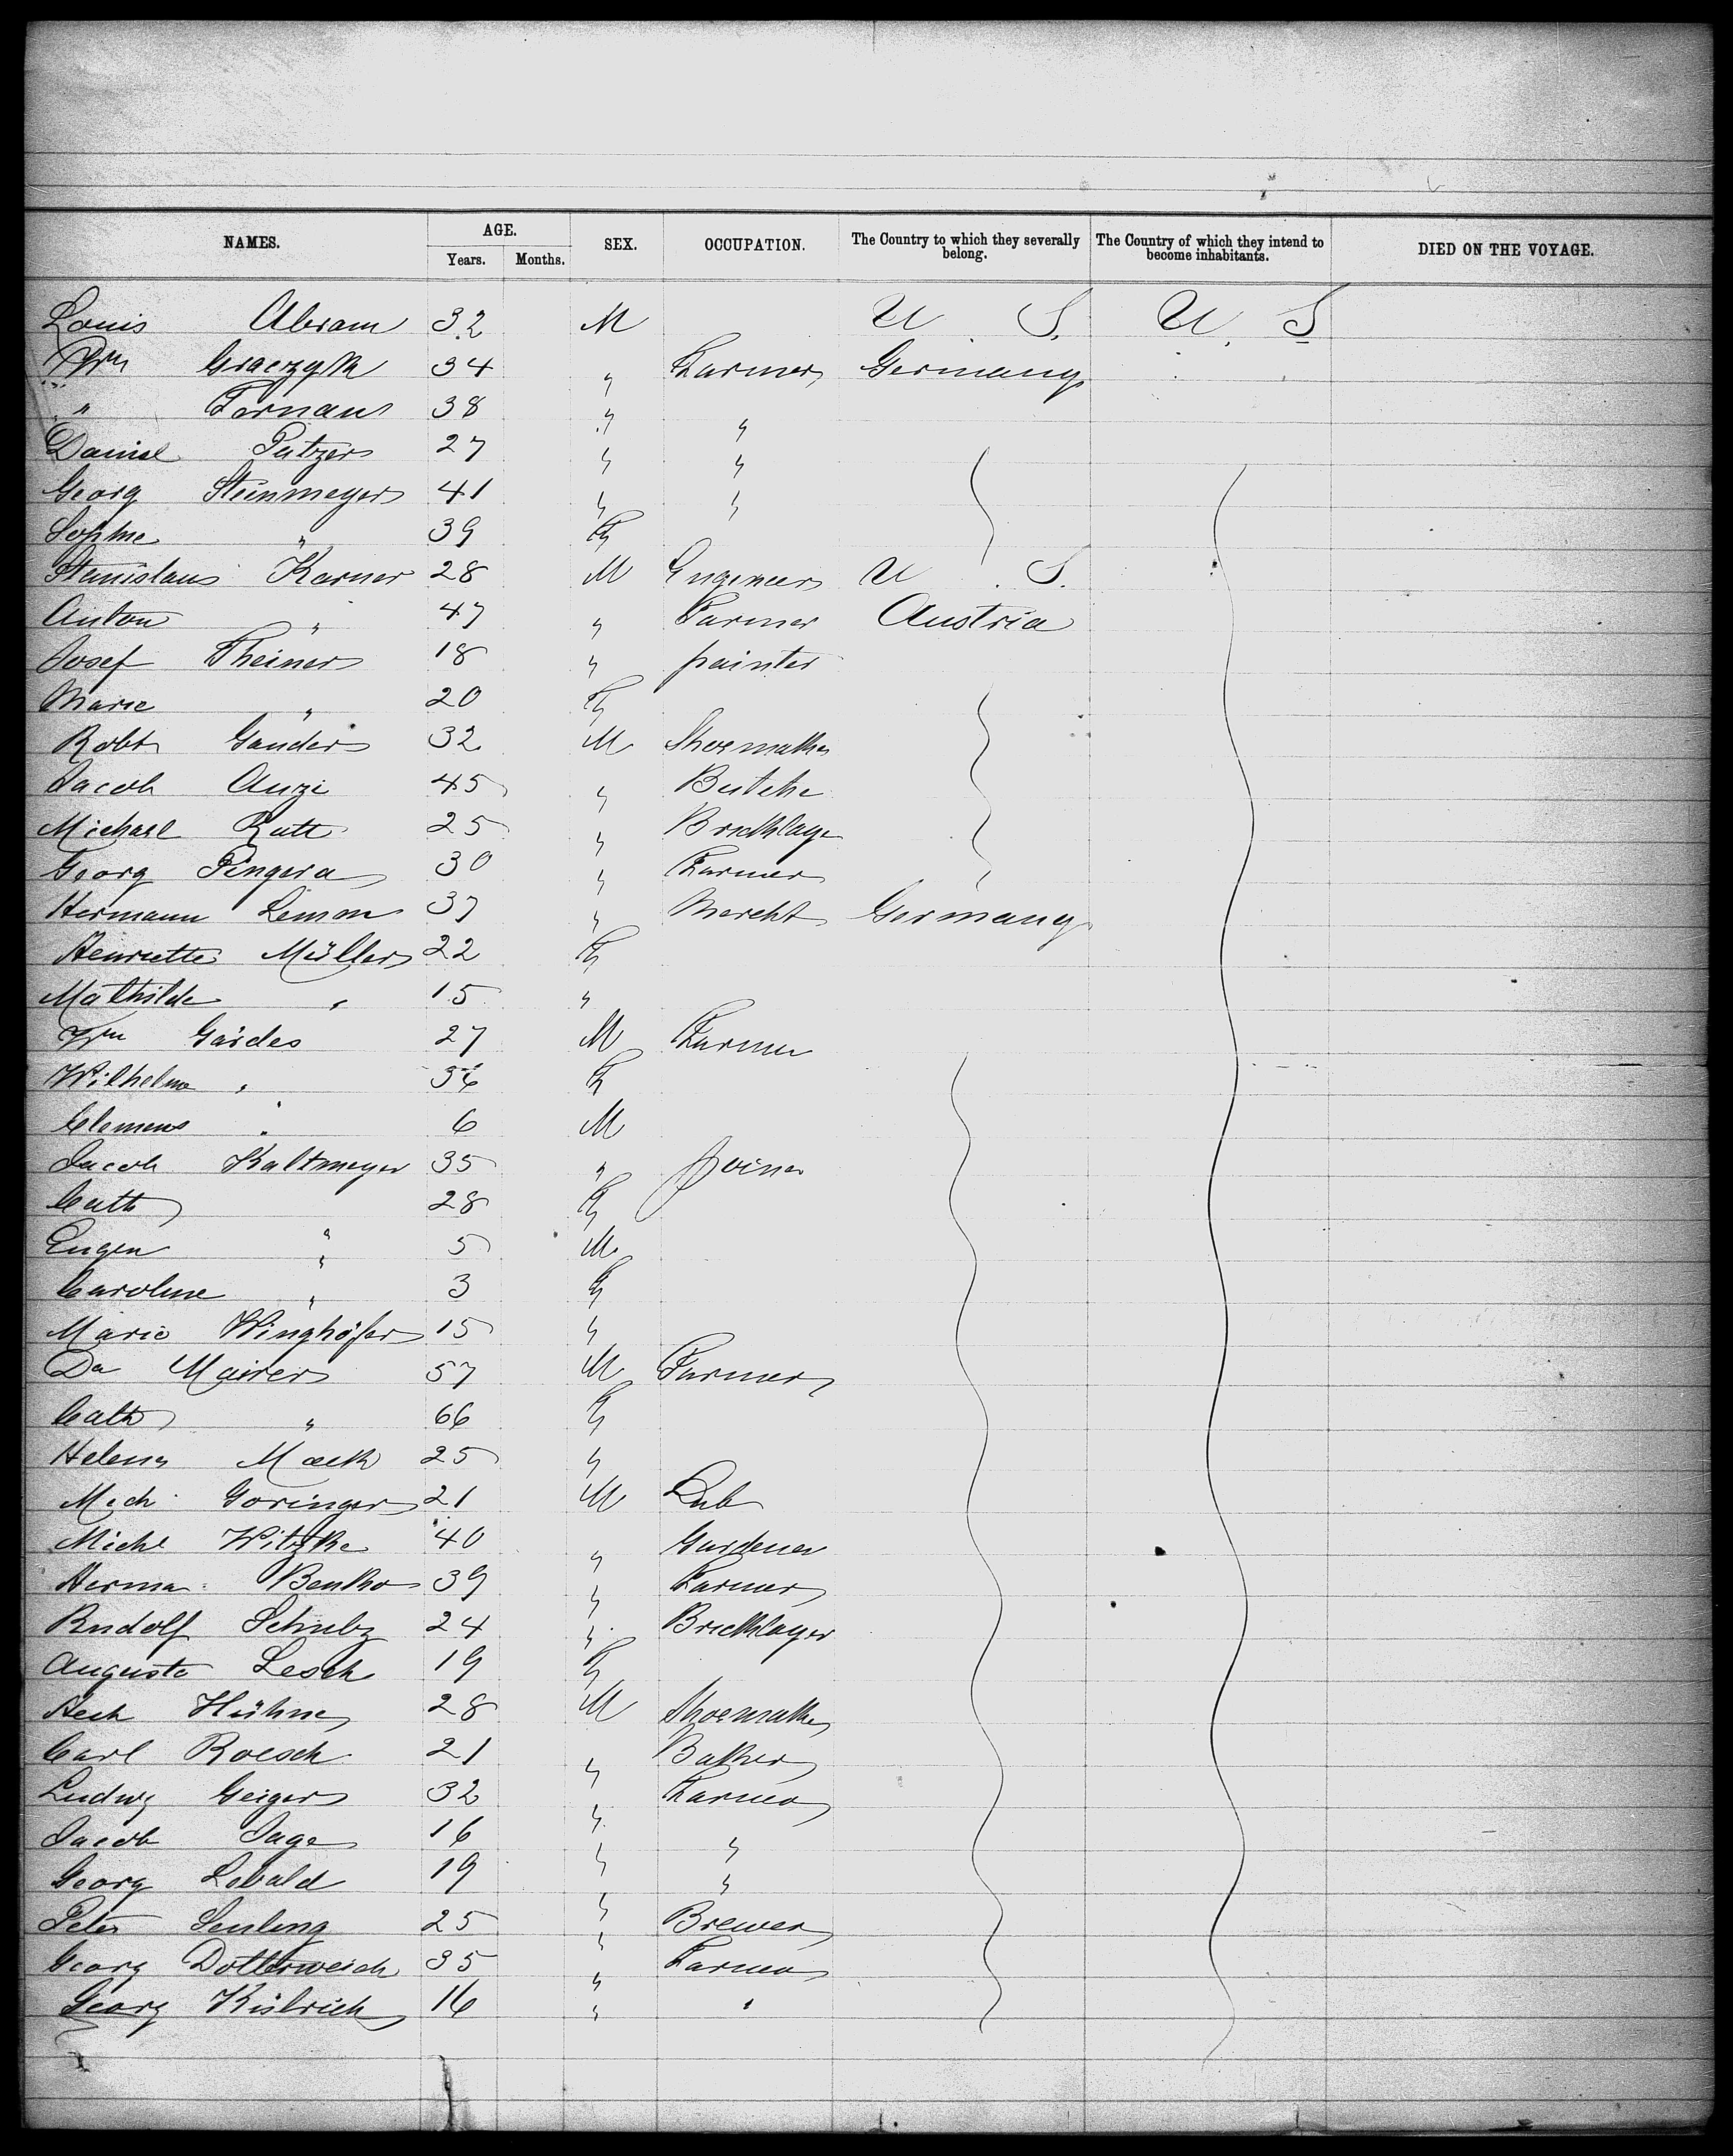 NAMES. AGE. SEX. OCCUPATION. The Country to which they severally belong. The Country of which they intend to become inhabitants. DIED ON THE VOYAGE.
Years. Months.
Louis Abram 32 M U S. U. S
Wm Graczyk 34 " Farmer Germany
" Fornau 38 " "
Daniel Putzer 27 " "
Georg Steinmeyer 41 " "
Sophie " 39 F
Stanislaus Karner 28 M Engineer U. S.
Anton " 47 " Farmer Austria
Josef Theiner 18 " painter
Marie " 20 F
Robt Gander 32 M Shoemaker
Jacob Auzi 45 " Butche
Michael Rutt 25 " Bricklaye
Georg Pingera 30 " Farmer
Hermann Lemm 37 " Mercht Germany
Henriette Müller 22 F
Mathilde " 15 "
Wm Gärdes 27 M Farmer
Wilhelm " 36 F
Clemens " 6 M
Jacob Kaltmeyer 35 " Joiner
Cath 28 F
Eugen " 5 M
Caroline " 3 F
Marie Winghöfer 15 "
Da Mairer 57 M Farmer
Cath " 66 F
Helena Mack 25 "
Mich Goringer 21 M Lab
Michl Witzke 40 " Gardener
Herma Benko 39 " Farmer
Rudolf Schulz 24 " Bricklayer
Auguste Lesch 19 F
Hühne 28 M Shoemaker
Carl Roesch 21 " Baker
Ludwg Geiger 32 " Farmer
Jacob Jage 16 " "
Georg Lebald 19 " "
Peter Senling 25 " Brewer
Georg Dotterweich 35 " Farmer
Georg Kislrich 16 " "